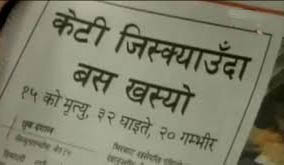 केटी जिस्क्याउँदा
बस खस्यो
१५ को मृत्यु, ३२ घाइते, २० गम्भीर